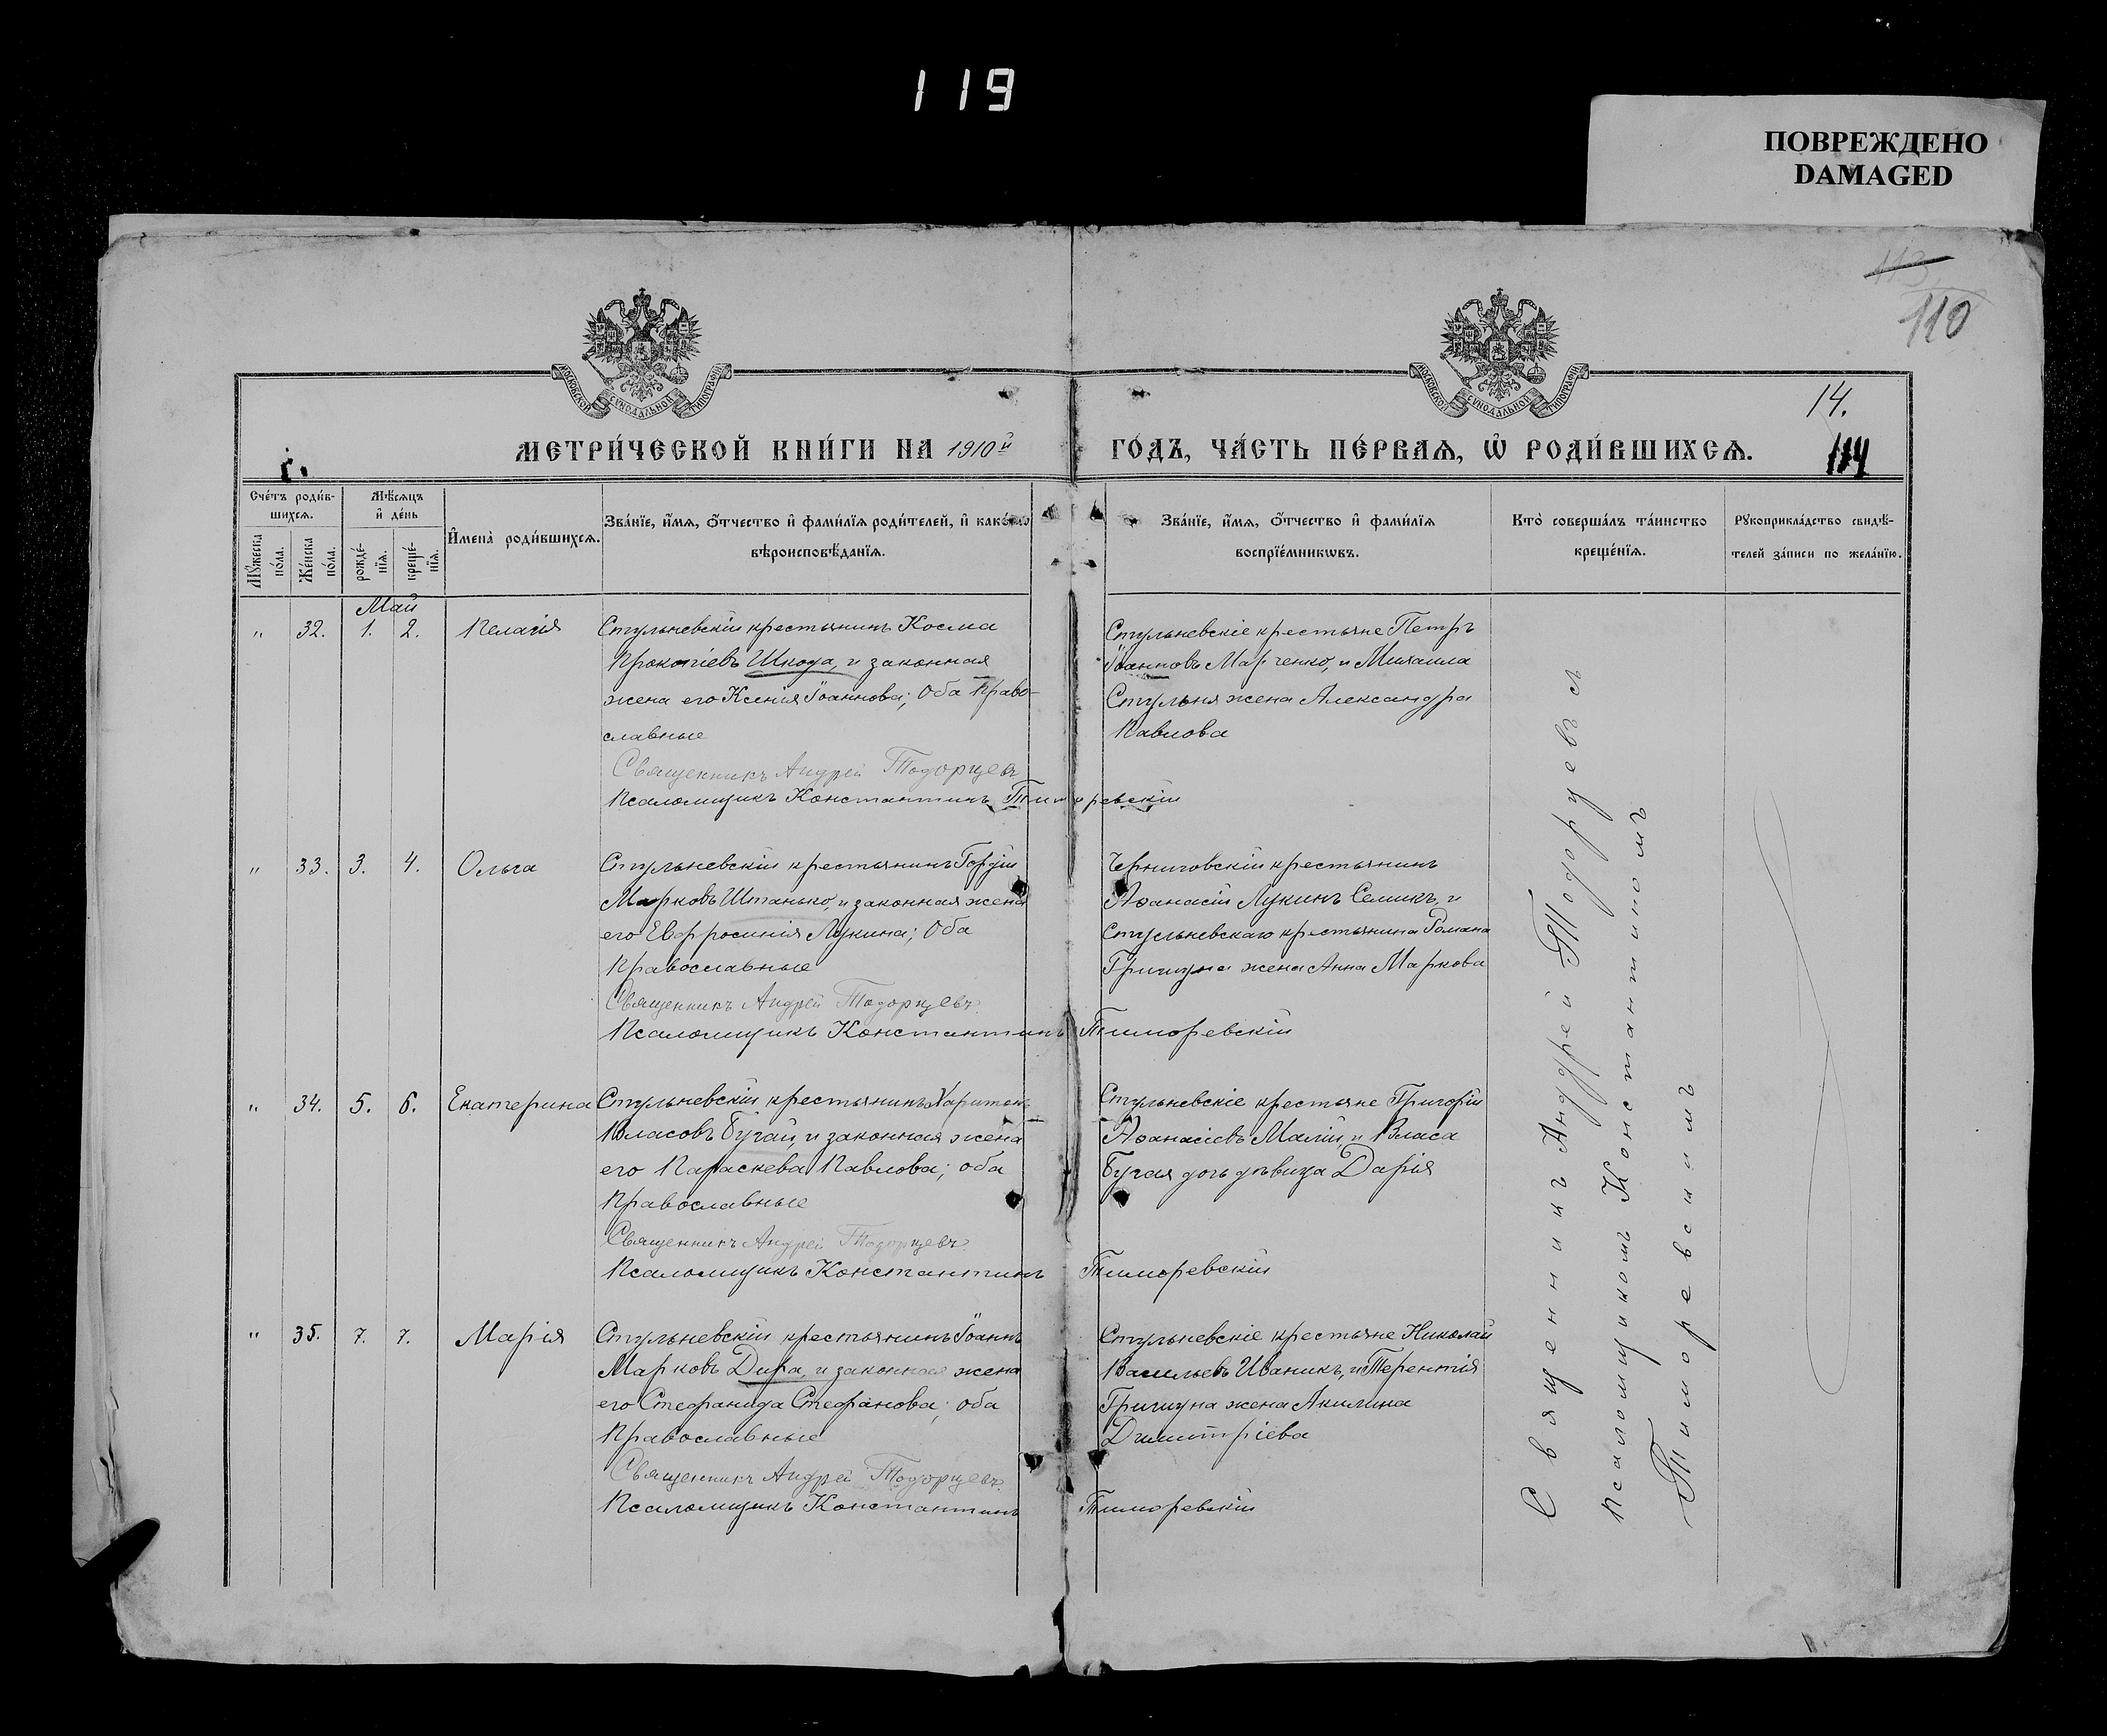 119
ПОВРЕЖДЕНО
DAMAGED
113
110
МОСКОВСКОЙ СѴНОДАЛЬНОЙ ТИПОГРАФІИ
МОСКОВСКОЙ СѴНОДАЛЬНОЙ ТИПОГРАФІИ
14.
МЕТРИ́ЧЕСКОЙ КНИ́ГИ НА 1910й ГО́ДЪ, ЧА́СТЬ ПЕ́РВАѦ, Ѡ҆ РОДИ́ВШИХСѦ.
114
Сче́тъ роди́в-
шихсѧ.
Мꙋ́жеска по́ла.
Же́нска по́ла.
Мѣ́сѧцъ
и҆ де́нь
рожде́-нїѧ.
креще́-нїѧ.
И҆мена̀ роди́вшихсѧ.
Зва́нїе, и҆́мѧ, ѻ҆́тчество и҆ фами́лїѧ роди́телей, и҆ како́гѡ
вѣроисповѣ́данїѧ.
Зва́нїе, и҆́мѧ, ѻ҆́тчество и҆ фами́лїѧ
воспрїе́мникѡвъ.
Кто̀ соверша́лъ та́инство
креще́нїѧ.
Рꙋкоприкла́дство свидѣ́-
телей за́писи по жела́нїю.
Май
" 32. 1. 2. Пелагія
Стульневскій крестьянинъ Косма
Прокопіевъ Шкода, и законная
жена его Ксенія Іоаннова; Оба право-
славные
Священникъ Андрей Тодорцевъ
Псаломщикъ Константинъ Тиморевскій
Стульневскіе крестьяне Петръ
Іоанновъ Марченко, и Михаила
Стульня жена Александра
Павлова
" 33. 3. 4. Ольга
Стульневскій крестьянинъ Гордій
Марковъ Штанько, и законная жена
его Евфросинія Лукина; Оба
Православные
Священникъ Андрей Тодорцевъ
Псаломщикъ Константинъ Тиморевскій
Черниговскій крестьянинъ
Аѳанасій Лукинъ Семикъ, и
Стульневскаго крестьянина Романа
Гришуна жена Анна Маркова
" 34. 5. 6. Екатерина
Стульневскій крестьянинъ Харитонъ
Власовъ Бугай, и законная жена
его Параскева Павлова; оба
Православные
Священникъ Андрей Тодорцевъ
Псаломщикъ Константинъ Тиморевскій
Стульневскіе крестьяне Григорій
Аѳанасіевъ Малій, и Власа
Бугая дочь дѣвица Дарія
" 35. 7. 7. Марія
Стульневскій крестьянинъ Іоаннъ
Марковъ Дира, и законная жена
его Стефанида Стефанова; оба
Православные
Священникъ Андрей Тодорцевъ
Псаломщикъ Константинъ Тиморевскій
Стульневскіе крестьяне Николай
Васильевъ Иваникъ, и Терентія
Гришуна жена Акилина
Димитріева
Священникъ Андрей Тодорцевъ с
псаломщикомъ Константиномъ
Тиморевскимъ